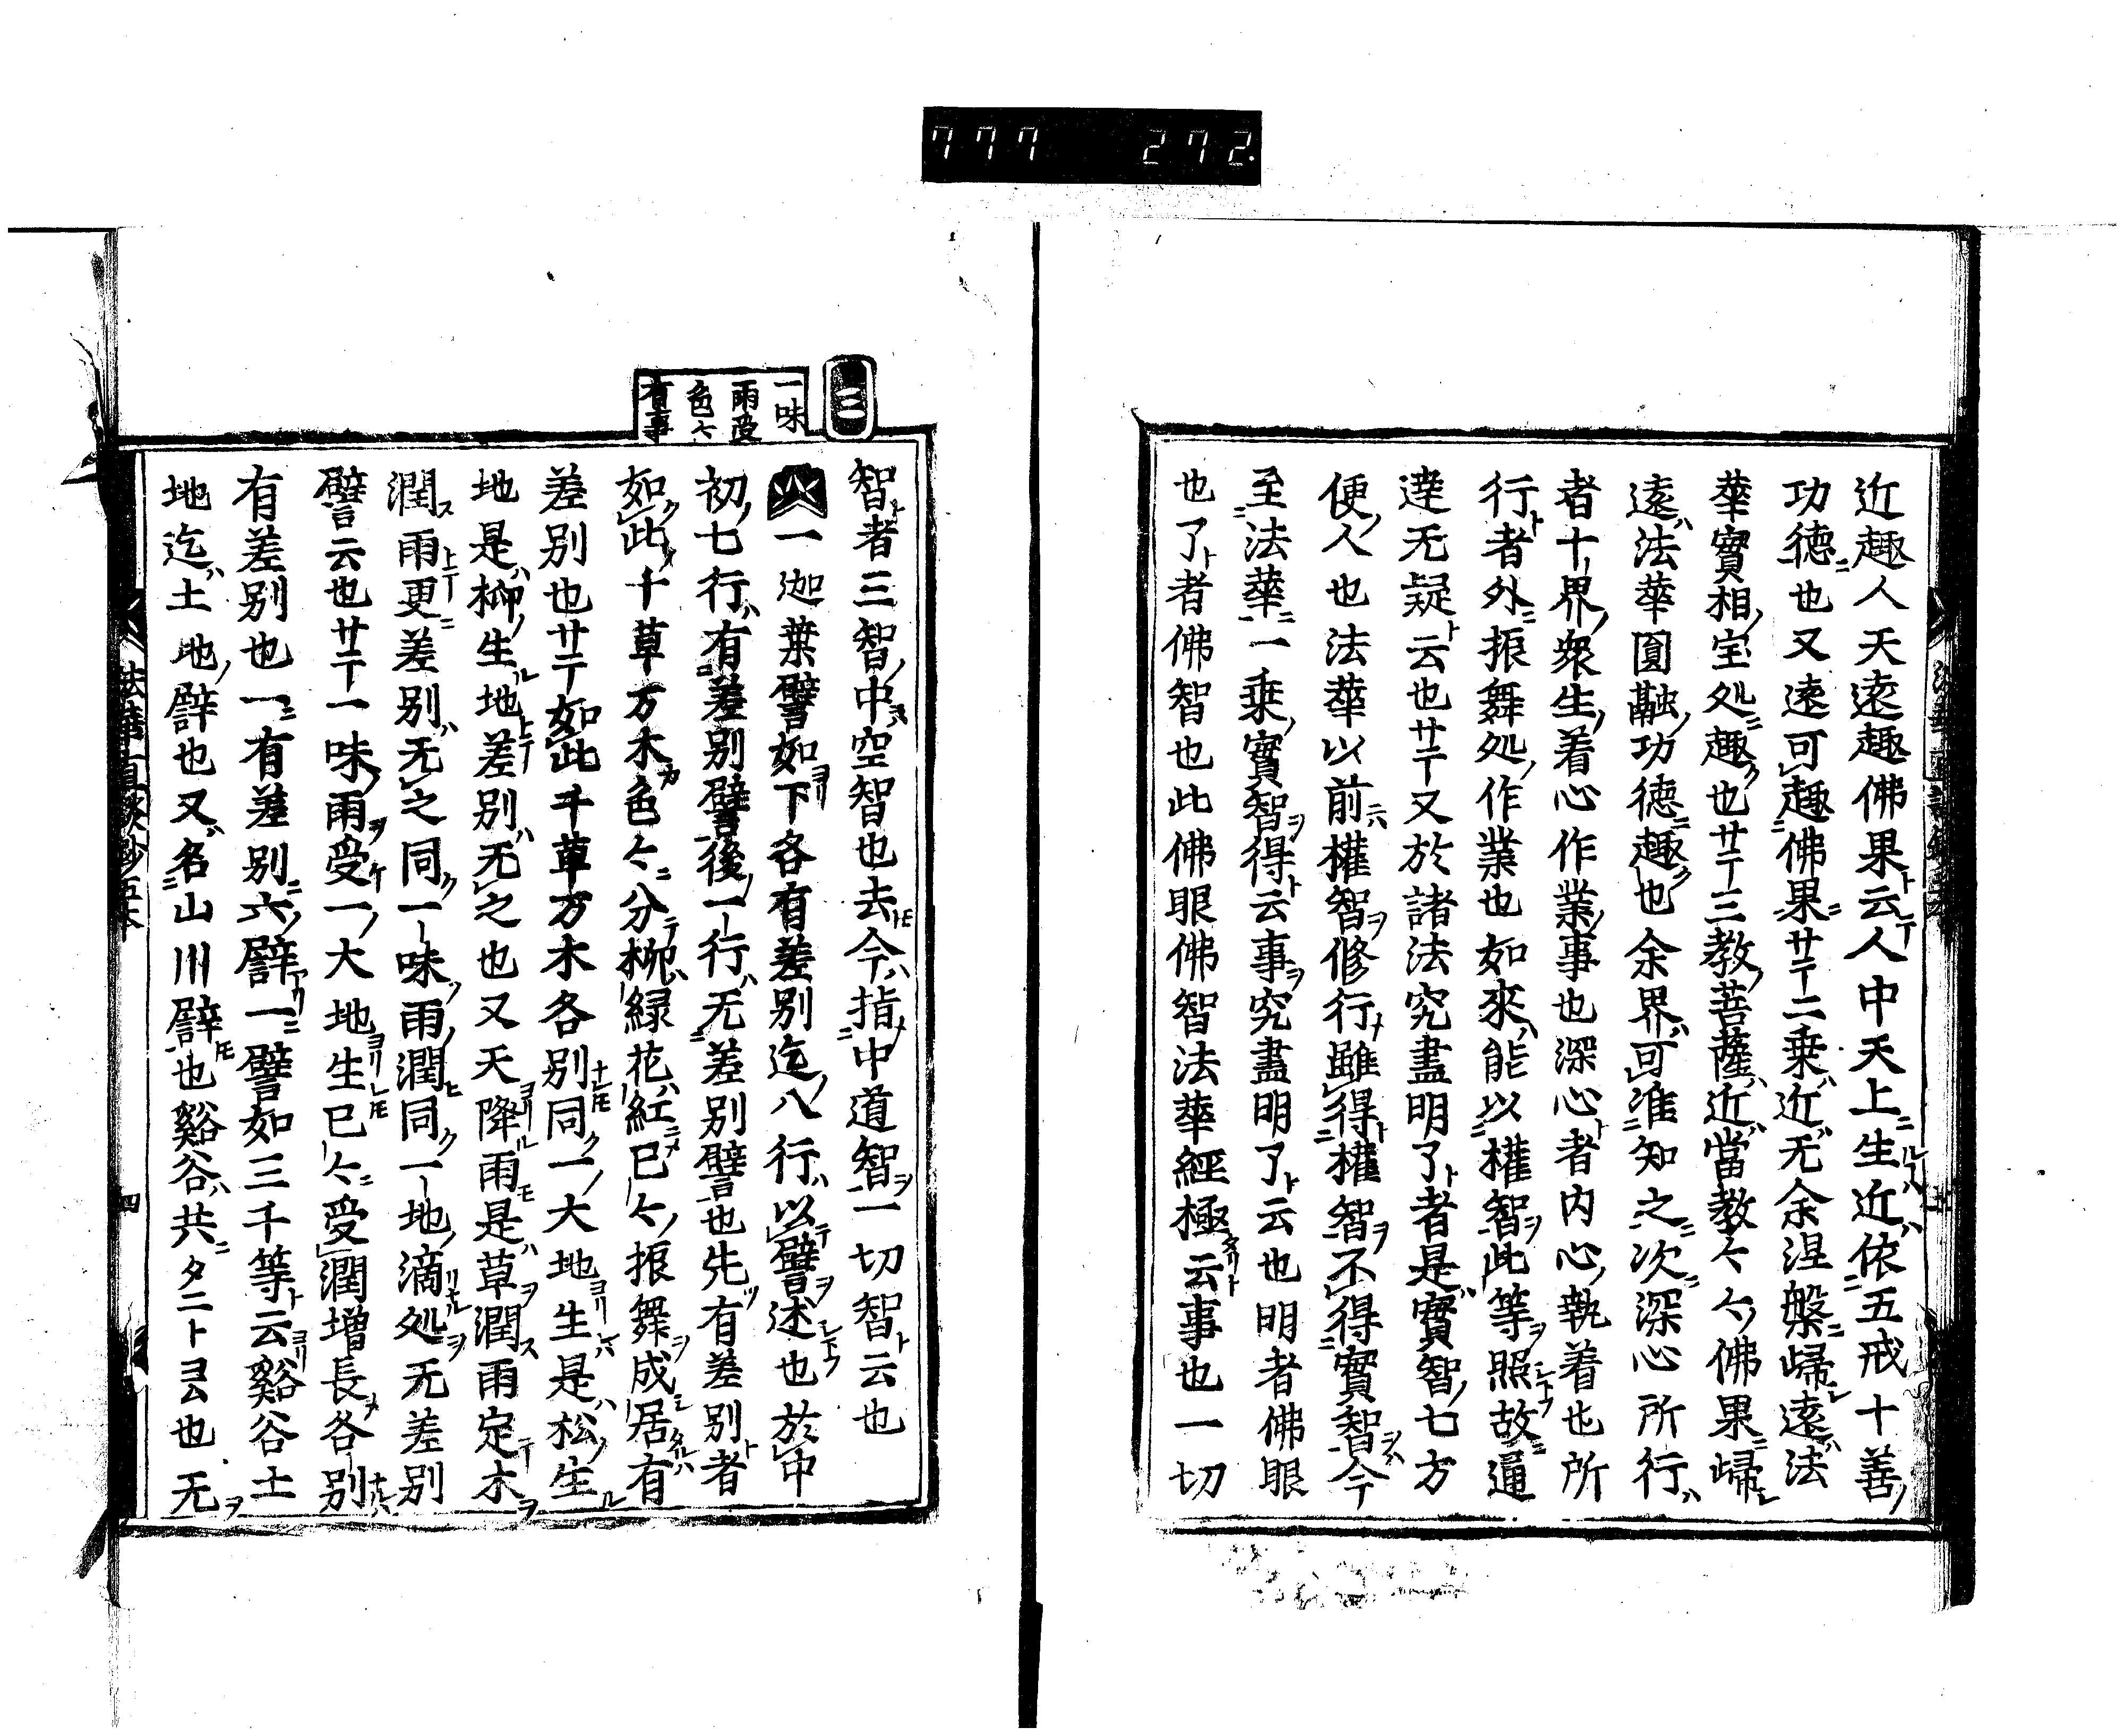 777 272.
近趣人天遠趣佛果云人中天上生近依五戒十善
功徳也又遠可趣佛果サテ二乗近无余涅槃歸遠法
華實相宝処趣也サテ三教菩薩近當教々々佛果歸
遠法華圓融功徳趣也余界可准知之次深心所行
者十界衆生着心作業事也深心者内心執着也所
行者外振舞処作業也如來能以權智此等照故逼
達无疑云也サテ又於諸法究盡明了者是實智七方
便人也法華以前權智修行雖得權智不得實智今
至法華一乗實智得云事究盡明了云也明者佛眼
也了者佛智也此佛眼佛智法華經極云事也一切
智者三智中空智也去今指中道智一切智云也
一味
雨受
色々
有事
一迦葉譬如下各有差別迄八行以譬述也於中
初七行有差別譬後一行无差別譬也先有差別者
如此十草万木色々分柳緑花紅已々振舞成居有
差別也サテ如此千草万木各別同一大地生是松生
地是柳生地差別无之也又天降雨是草潤雨定木
潤雨更差別无之同一味雨潤同一地滴処无差別
譬云也サテ一味雨受一大地生已々受潤増長各別
有差別也一有差別六譬一譬如三千等云谿谷土
地迄土地譬也又名山川譬也谿谷共タニトヨム也无
法華直談鈔五本
四